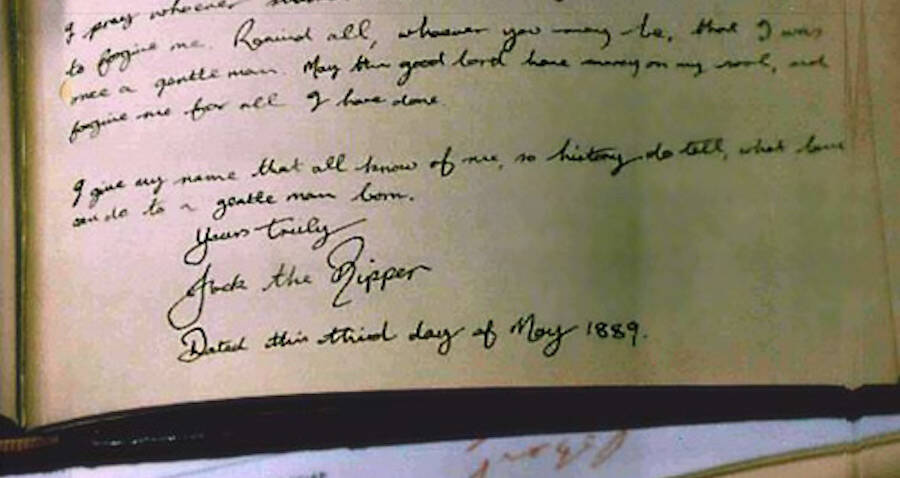 I pray whoever
to forgive me. Remind all, whoever you may be, that I was
once a gentle man. May the good lord have mercy on my soul, and
forgive me for all I have done.
I give my name that all know of me, so history do tell, what love
can do to a gentle man born.
Yours truly
Jack the Ripper
Dated this third day of May 1889.